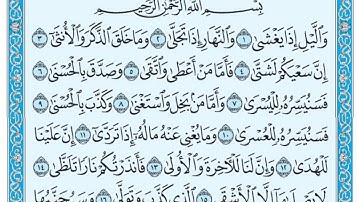 بِسْمِ ٱللَّهِ ٱلرَّحْمَٰنِ ٱلرَّحِيمِ
وَٱلَّيْلِ إِذَا يَغْشَىٰ ١ وَٱلنَّهَارِ إِذَا تَجَلَّىٰ ٢ وَمَا خَلَقَ ٱلذَّكَرَ وَٱلْأُنثَىٰٓ ٣
إِنَّ سَعْيَكُمْ لَشَتَّىٰ ٤ فَأَمَّا مَنْ أَعْطَىٰ وَٱتَّقَىٰ ٥ وَصَدَّقَ بِٱلْحُسْنَىٰ ٦
فَسَنُيَسِّرُهُۥ لِلْيُسْرَىٰ ٧ وَأَمَّا مَنۢ بَخِلَ وَٱسْتَغْنَىٰ ٨ وَكَذَّبَ بِٱلْحُسْنَىٰ ٩
فَسَنُيَسِّرُهُۥ لِلْعُسْرَىٰ ١٠ وَمَا يُغْنِى عَنْهُ مَالُهُۥٓ إِذَا تَرَدَّىٰٓ ١١ إِنَّ عَلَيْنَا
لَلْهُدَىٰ ١٢ وَإِنَّ لَنَا لَلْءَاخِرَةَ وَٱلْأُولَىٰ ١٣ فَأَنذَرْتُكُمْ نَارًا تَلَظَّىٰ ١٤
لَا يَصْلَىٰهَآ إِلَّا ٱلْأَشْقَى ١٥ ٱلَّذِى كَذَّبَ وَتَوَلَّىٰ ١٦ وَسَيُجَنَّبُهَا